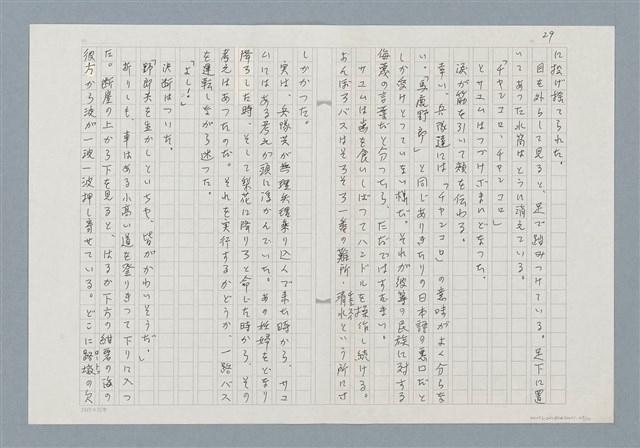 29
に投げ捨てられた。
目を外らして見ると、足で踏みつけている。足下に置
いてあった水筒はとうに消えている。
「チャンコロ、チャンコロ」
とサユムはつづけざまにどなった。
涙が筋を引いて頬を伝わる。
幸い、兵隊達には「チャンコロ」の意味がよく分らな
い。「馬鹿野郎」と同じありきたりの日本語の悪口だと
しか受けとっていない様だ。それが彼等の民族に対する
侮蔑の言葉だと分ったら、ただではすむまい。
サユムは歯を食いしばってハンドルを操作し続ける。
おんぼろバスはそろそろ一番の難所・清水という所にさ
しかかった。
実は、兵隊共が無理矢理乗り込んで来た時から、サユ
ムにはある考えが頭に浮かんでいた。あの妊婦をどなり
降ろした時、そして梨花に降りろと命じた時から、その
考えはあったのだ。それを実行するかどうか、一路バス
を運転しながら迷った。
「よし！」
決断はついた。
「野郎共を生かしといちゃ、皆がかわいそうだ。」
折りしも、車はある小高い道を登りきって下りに入っ
た。断崖の上から下を見ると、はるか下方の紺碧の海の
彼方から波が一波一波押し寄せている。どこに路機の欠